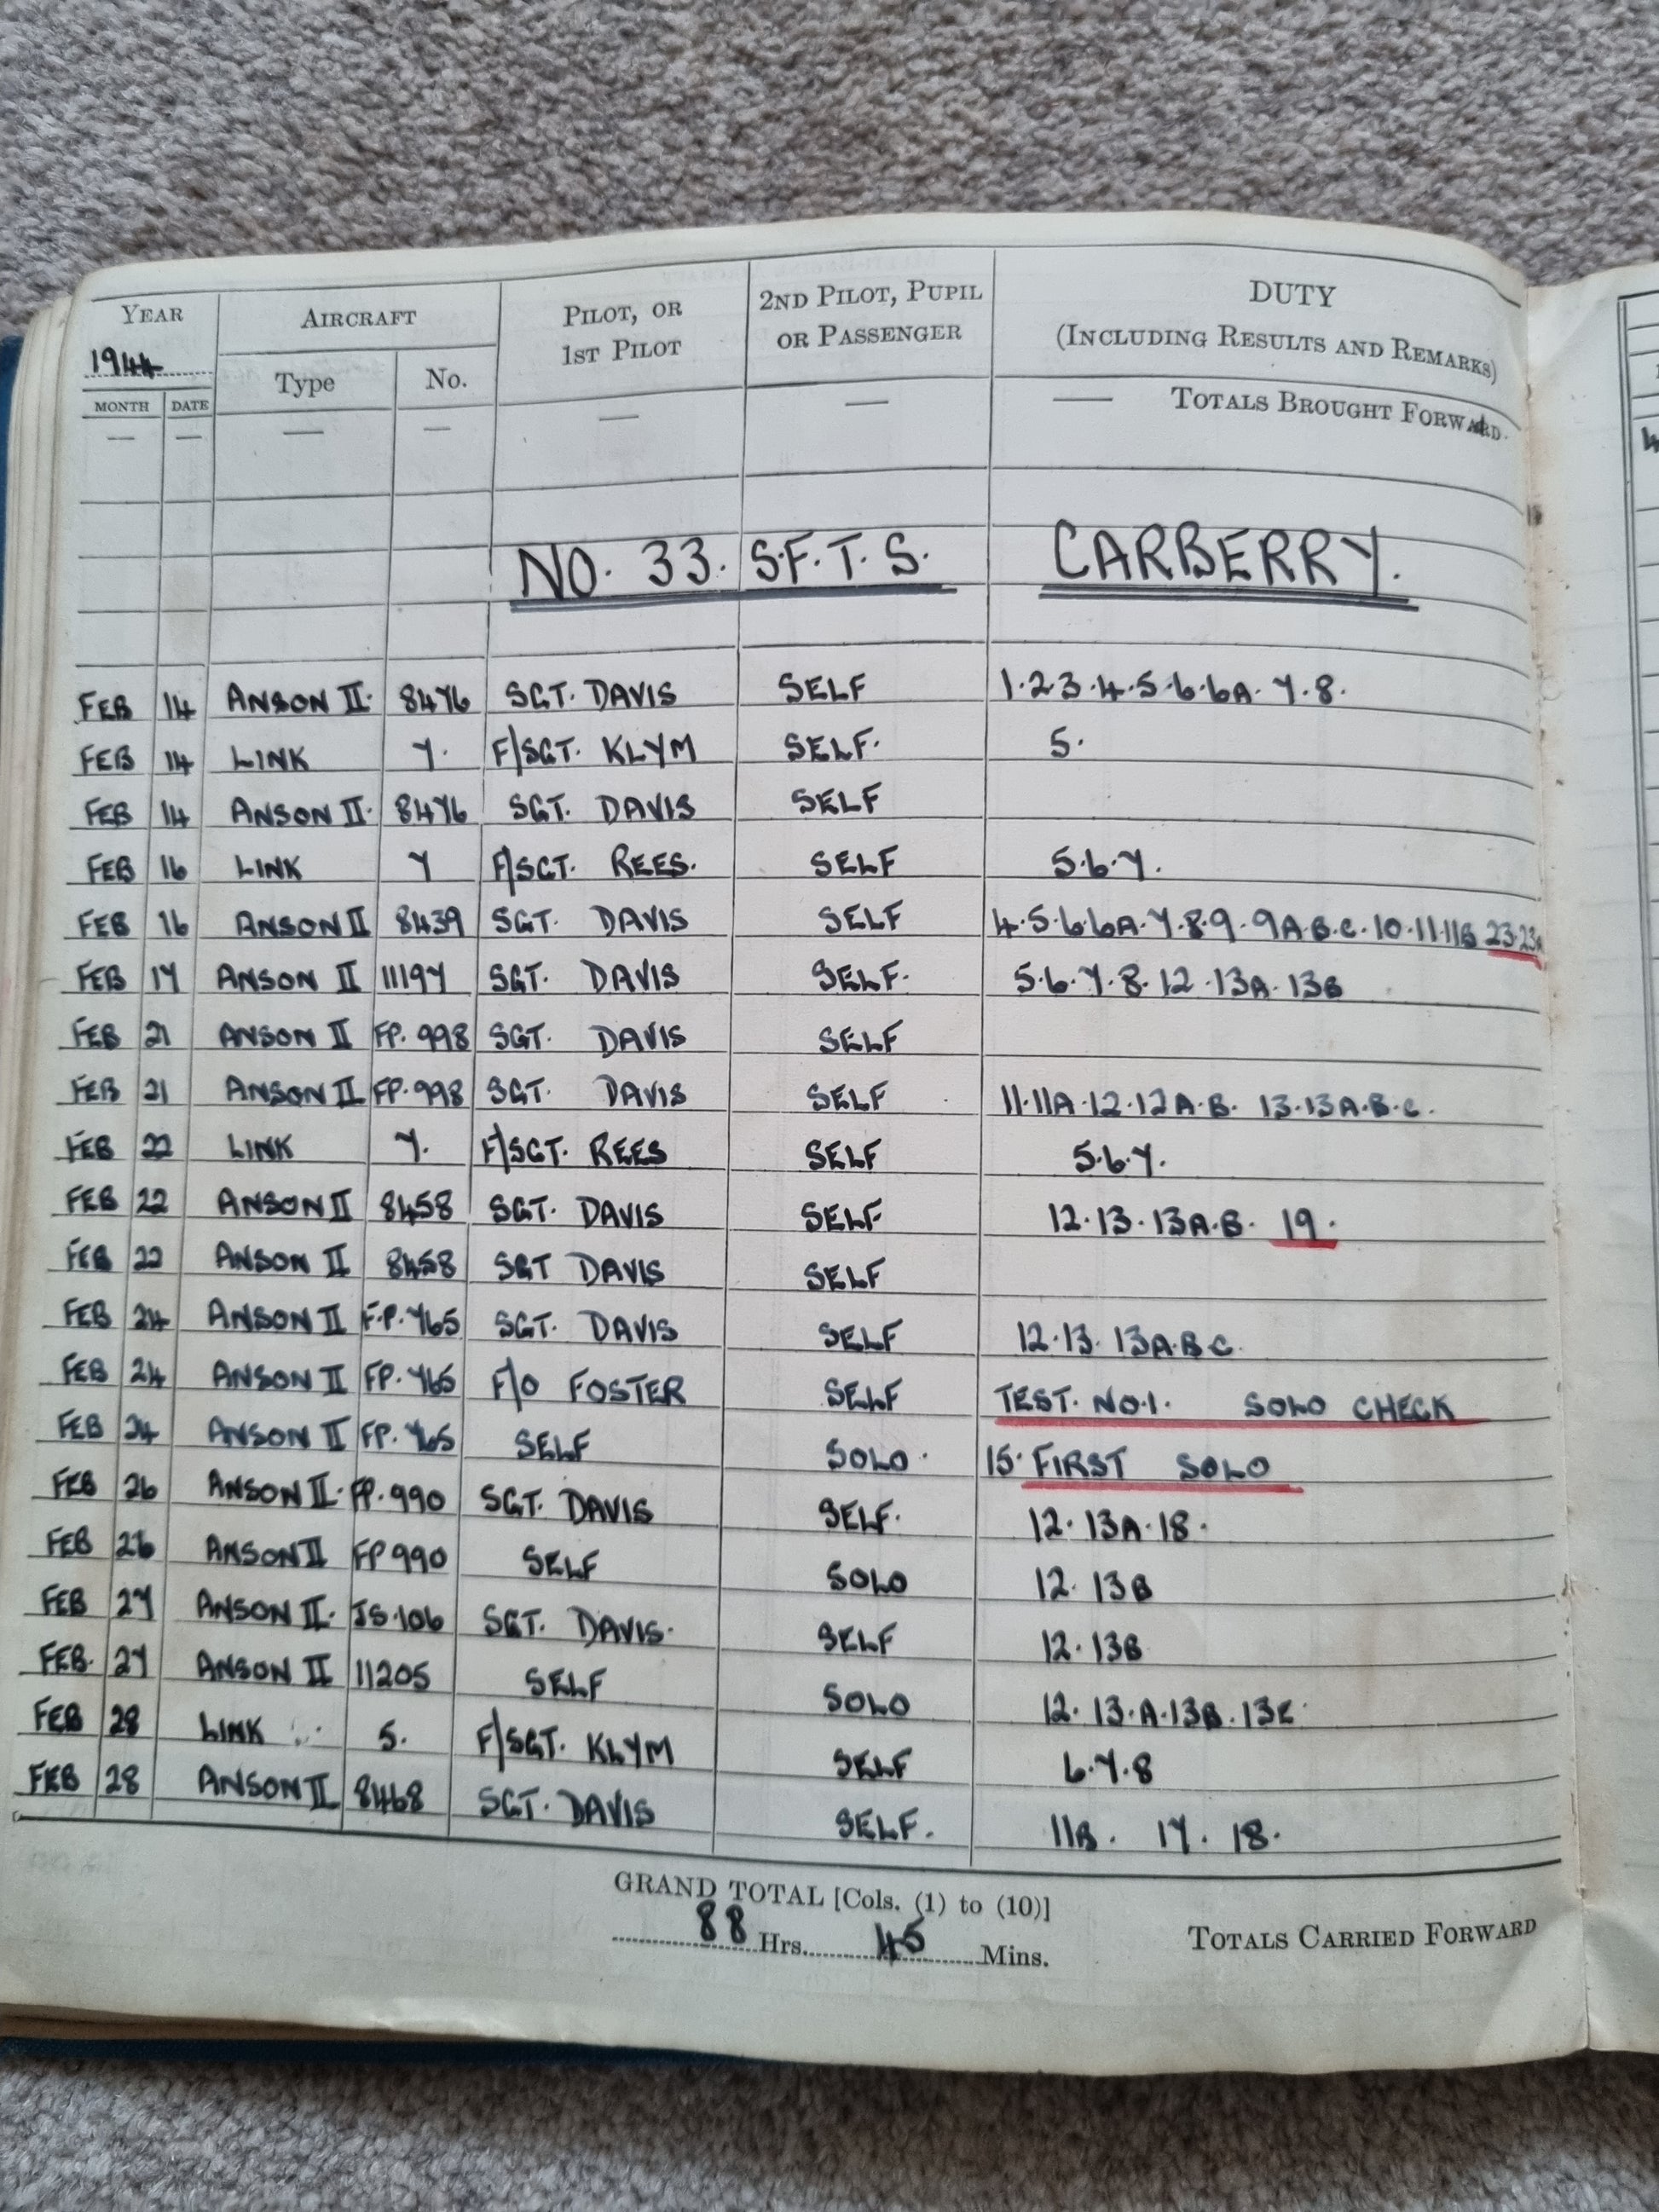 YEAR AIRCRAFT PILOT, OR 1ST PILOT 2ND PILOT, PUPIL OR PASSENGER DUTY (INCLUDING RESULTS AND REMARKS)
1944
MONTH DATE Type No.
— — — — — — — TOTALS BROUGHT FORWARD.
NO. 33. S.F.T.S. CARBERRY.
FEB 14 ANSON II. 8476 SGT. DAVIS SELF 1.2.3.4.5.6.6A.7.8.
FEB 14 LINK 7. F/SGT. KLYM SELF. 5.
FEB 14 ANSON II. 8476 SGT. DAVIS SELF
FEB 16 LINK 7 F/SGT. REES. SELF 5.6.7.
FEB 16 ANSON II 8439 SGT. DAVIS SELF 4.5.6.6A.7.8.9.9A.B.C.10.11.11B 23.23A
FEB 17 ANSON II 11197 SGT. DAVIS SELF. 5.6.7.8.12.13A.13B
FEB 21 ANSON II FP.998 SGT. DAVIS SELF
FEB 21 ANSON II FP.998 SGT. DAVIS SELF 11.11A.12.12A.B. 13.13A.B.C.
FEB 22 LINK 7. F/SGT. REES SELF 5.6.7.
FEB 22 ANSON II 8458 SGT. DAVIS SELF. 12.13.13A.B. 19.
FEB 22 ANSON II 8458 SGT DAVIS SELF
FEB 24 ANSON II F.P.765 SGT. DAVIS SELF 12.13. 13A.B.C.
FEB 24 ANSON II FP.765 F/O FOSTER SELF TEST. NO.1. SOLO CHECK
FEB 24 ANSON II FP.765 SELF SOLO. 15. FIRST SOLO
FEB 26 ANSON II. FP.990 SGT. DAVIS SELF. 12.13A.18.
FEB 26 ANSON II FP 990 SELF SOLO 12. 13B
FEB 27 ANSON II. JS.106 SGT. DAVIS. SELF 12.13B
FEB. 27 ANSON II 11205 SELF SOLO 12.13.A.13B.13C.
FEB 28 LINK 5. F/SGT. KLYM SELF 6.7.8
FEB 28 ANSON II 8468 SGT. DAVIS SELF. 11B. 17. 18.
GRAND TOTAL [Cols. (1) to (10)]
88 Hrs. 45 Mins. TOTALS CARRIED FORWARD